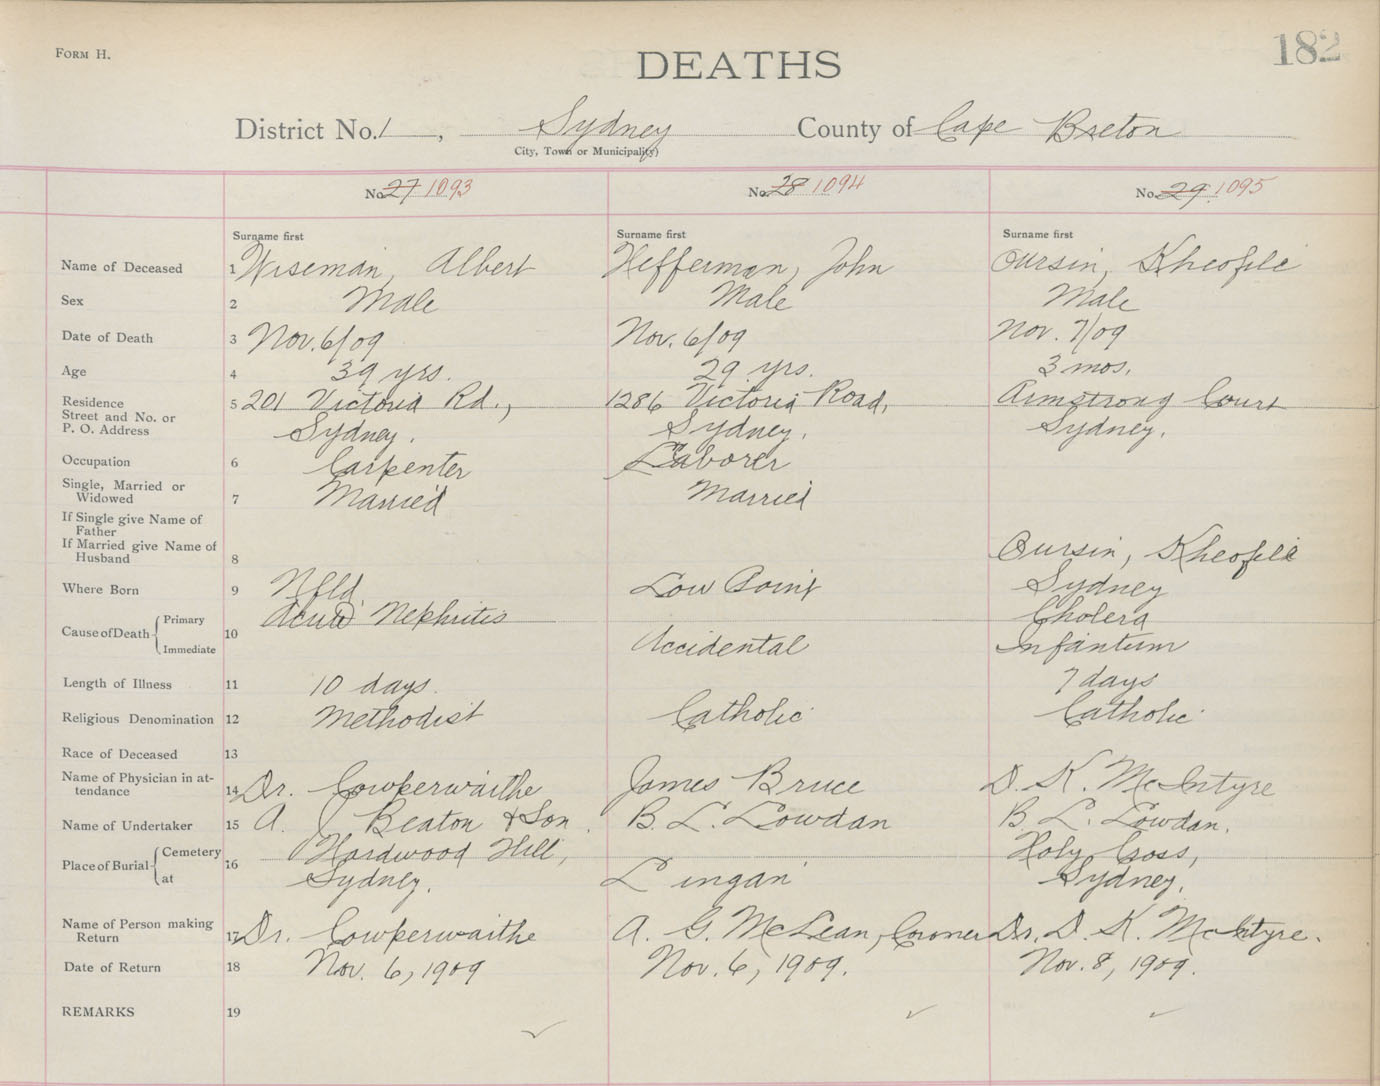 FORM H.
182
DEATHS
District No. 1, Sydney County of Cape Breton
City, Town or Municipality)
No. 27 1093 No. 28 1094 No. 29. 1095
Surname first Surname first Surname first
Name of Deceased 1 Wiseman, Albert Hefferman, John Oursin, Kheofile
Sex 2 Male Male Male
Date of Death 3 Nov. 6/09 Nov. 6/09 Nov. 7/09
Age 4 39 yrs. 29 yrs. 3 mos.
Residence 5 201 Victoria Rd., 1286 Victoria Road, Armstrong Court
Street and No. or
P. O. Address Sydney. Sydney. Sydney.
Occupation 6 Carpenter Laborer
Single, Married or
Widowed 7 Married Married
If Single give Name of
Father
If Married give Name of
Husband 8 Oursin, Kheofile
Where Born 9 Nfld Low Point Sydney
Cause of Death Primary 10 Acute Nephritis Cholera
Immediate Accidental Infantum
Length of Illness 11 10 days. 7 days
Religious Denomination 12 Methodist Catholic Catholic
Race of Deceased 13
Name of Physician in at-
tendance 14 Dr. Cowperwaithe James Bruce D. K. McIntyre
Name of Undertaker 15 A. J Beaton & Son. B. L. Lowdan B L. Lowdan.
Place of Burial Cemetery 16 Hardwood Hill, Holy Cross,
at Sydney. Lingan Sydney.
Name of Person making
Return 17 Dr. Cowperwaithe A. G. McLean, Coroner Dr. D. K. McIntyre.
Date of Return 18 Nov. 6, 1909 Nov. 6, 1909. Nov. 8, 1909.
REMARKS 19